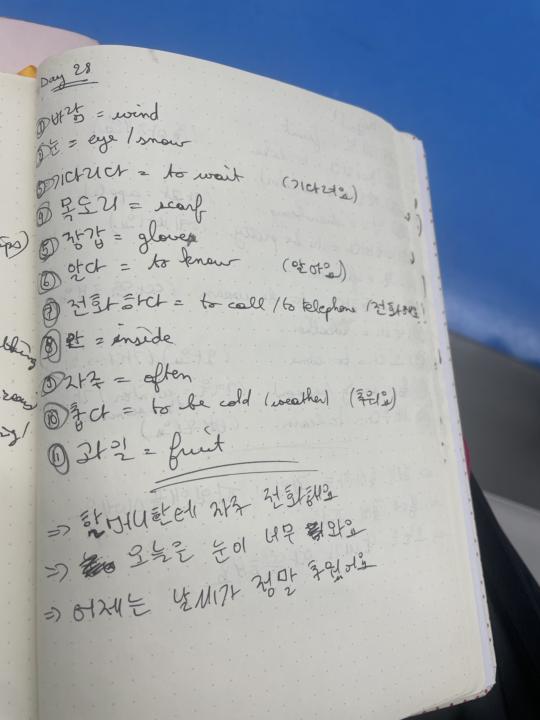 Day 28
① 바람 = wind
② 눈 = eye / snow
③ 기다리다 = to wait (기다려요)
④ 목도리 = scarf
⑤ 장갑 = glove
⑥ 알다 = to know (알아요)
⑦ 전화하다 = to call / to telephone (전화해요)
⑧ 안 = inside
⑨ 자주 = often
⑩ 춥다 = to be cold (weather) (추워요)
⑪ 과일 = fruit
⇒ 할머니한테 자주 전화해요
⇒ 오늘은 눈이 너무 와요
⇒ 어제는 날씨가 정말 추웠어요